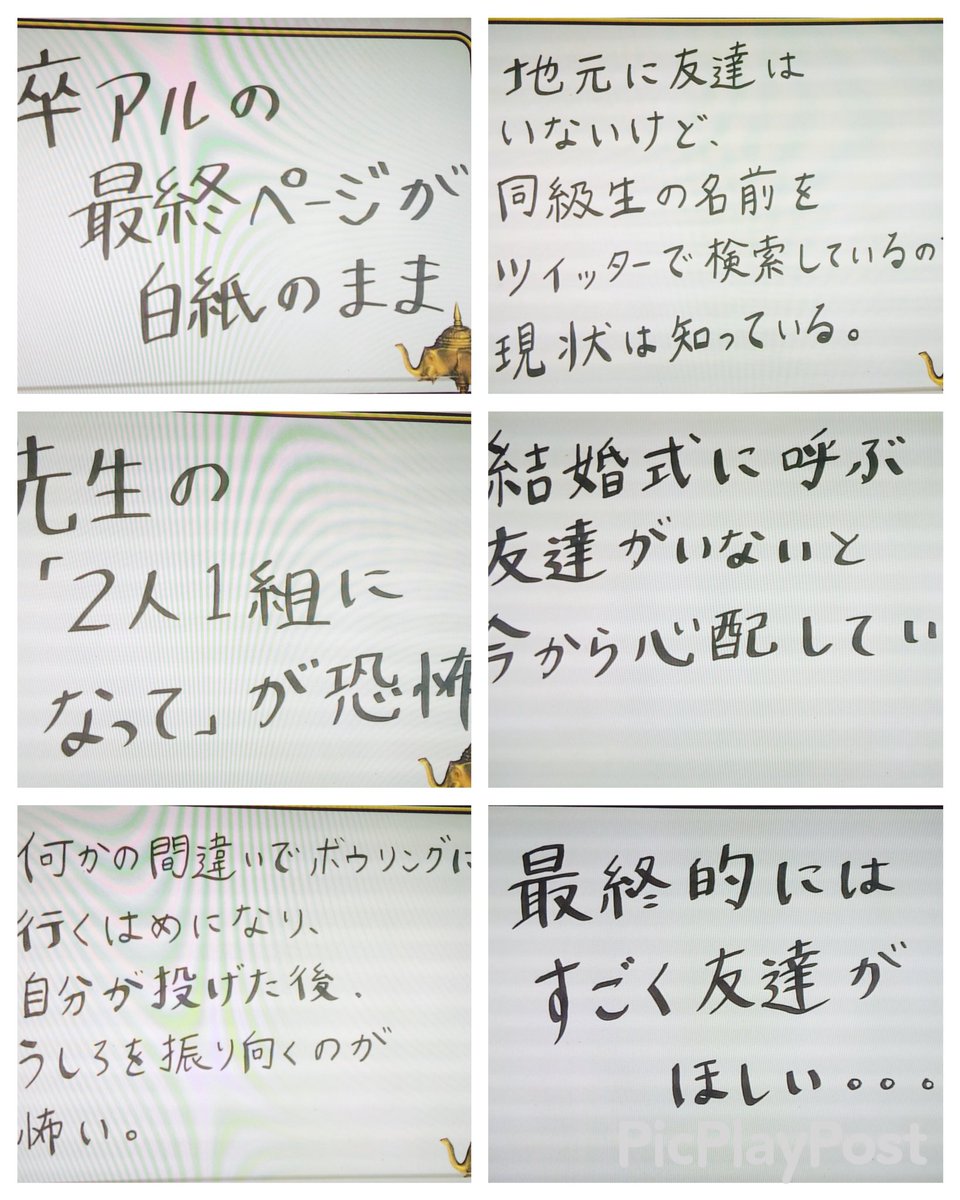 卒アルの
最終ページが
白紙のまま
地元に友達は
いないけど、
同級生の名前を
ツイッターで検索しているの
現状は知っている。
先生の
「2人1組に
なって」が恐怖
結婚式に呼ぶ
友達がいないと
今から心配してい
何かの間違いでボウリングに
行くはめになり、
自分が投げた後、
うしろを振り向くのが
怖い。
最終的には
すごく友達が
ほしい・・・
PicPlayPost